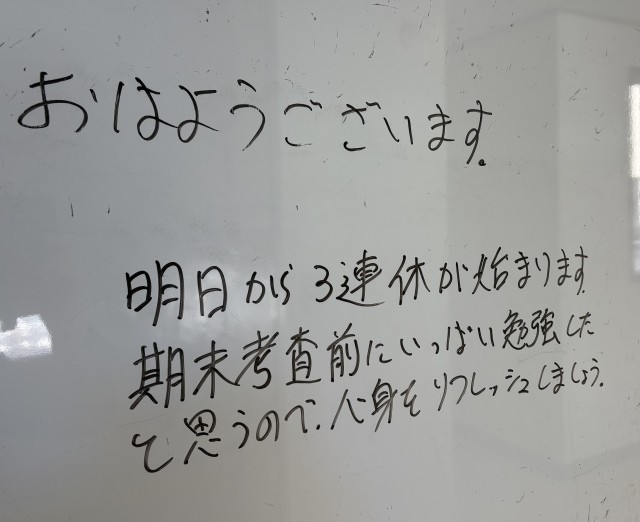 おはようございます.
明日から3連休が始まります.
期末考査前にいっぱい勉強した
と思うので、心身をリフレッシュしましょう.